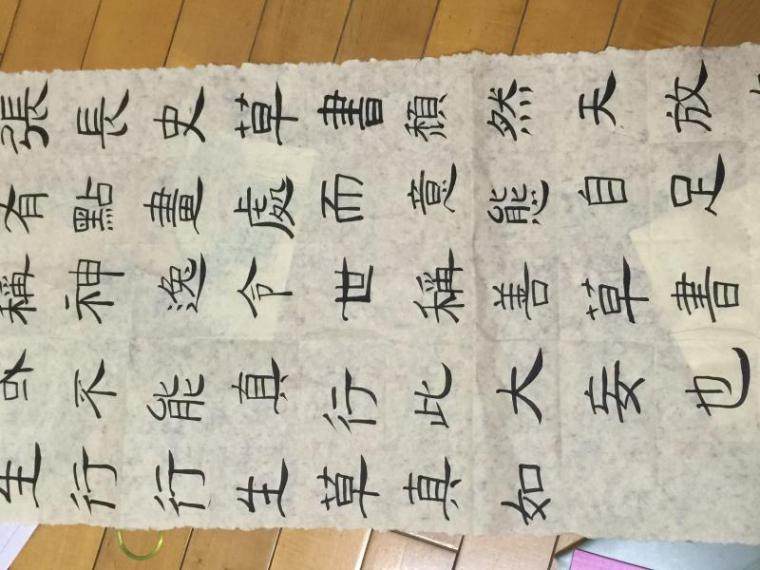 張長史草書頹然天放
有點畫處而意態自足
稱神逸令世稱善草書
或不能真行此大妄也
生行行生草真如